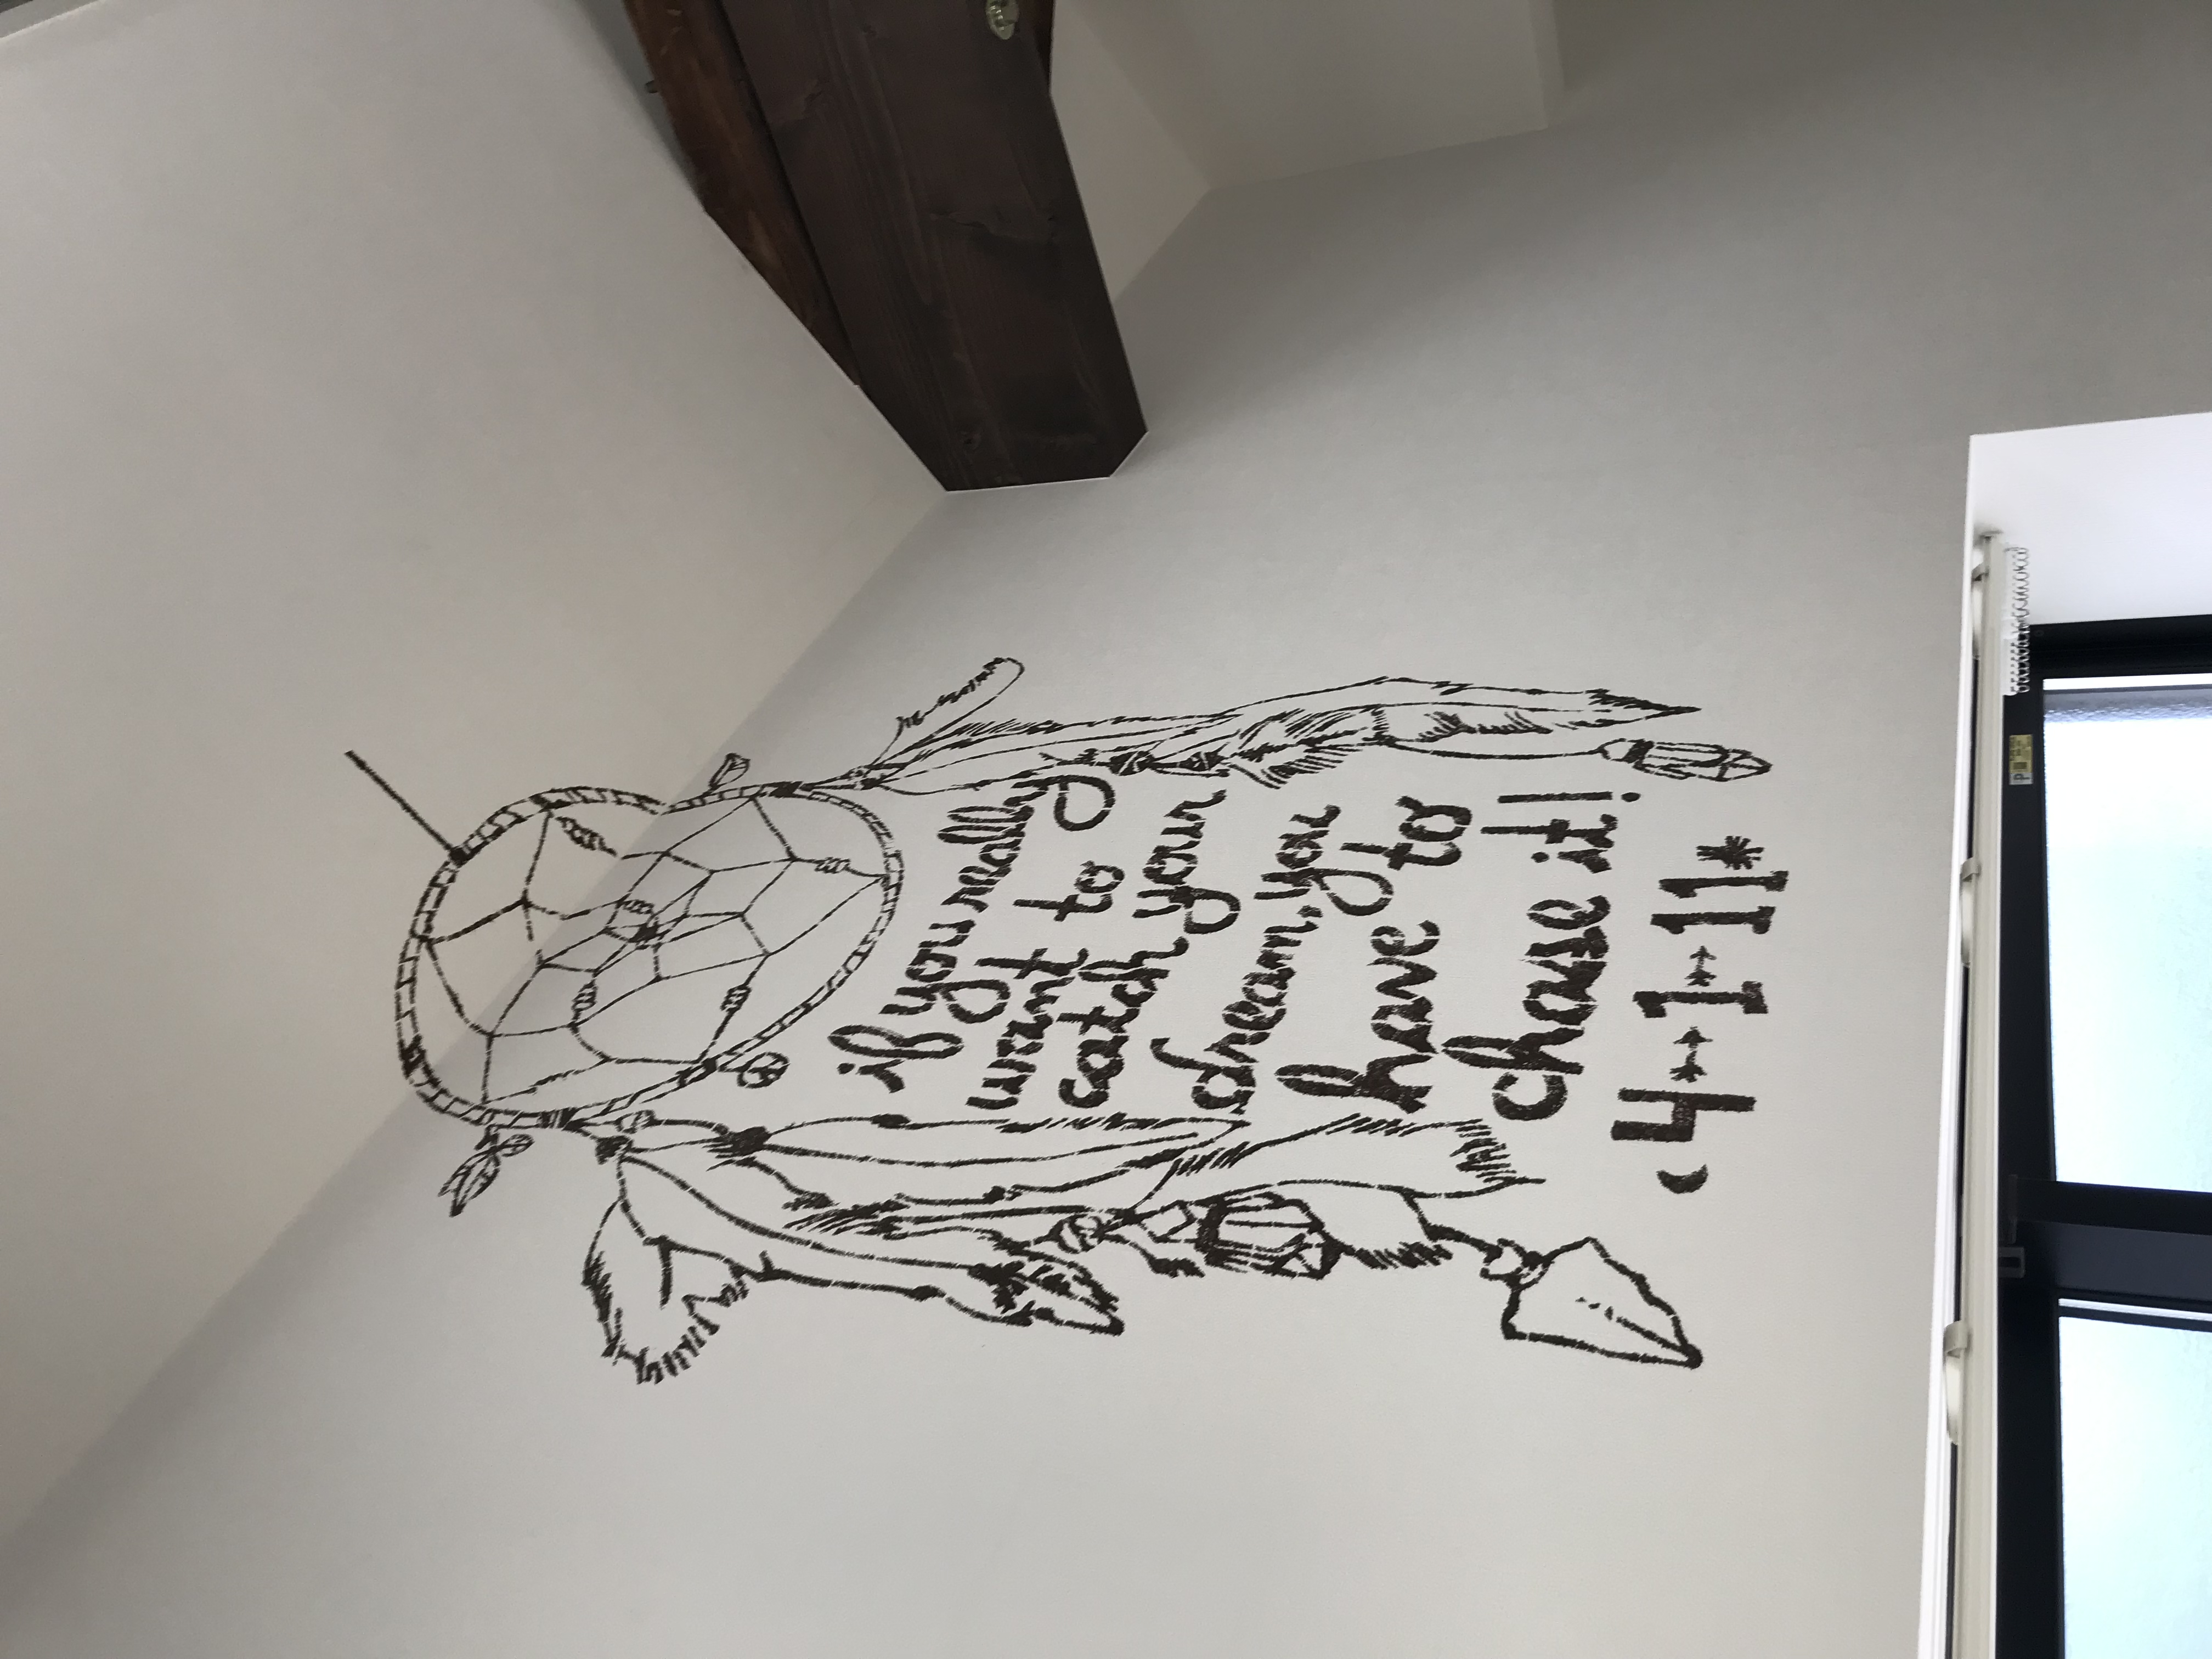 if you really
want to
catch your
dream, you
have to
chase it!
4-1-11*